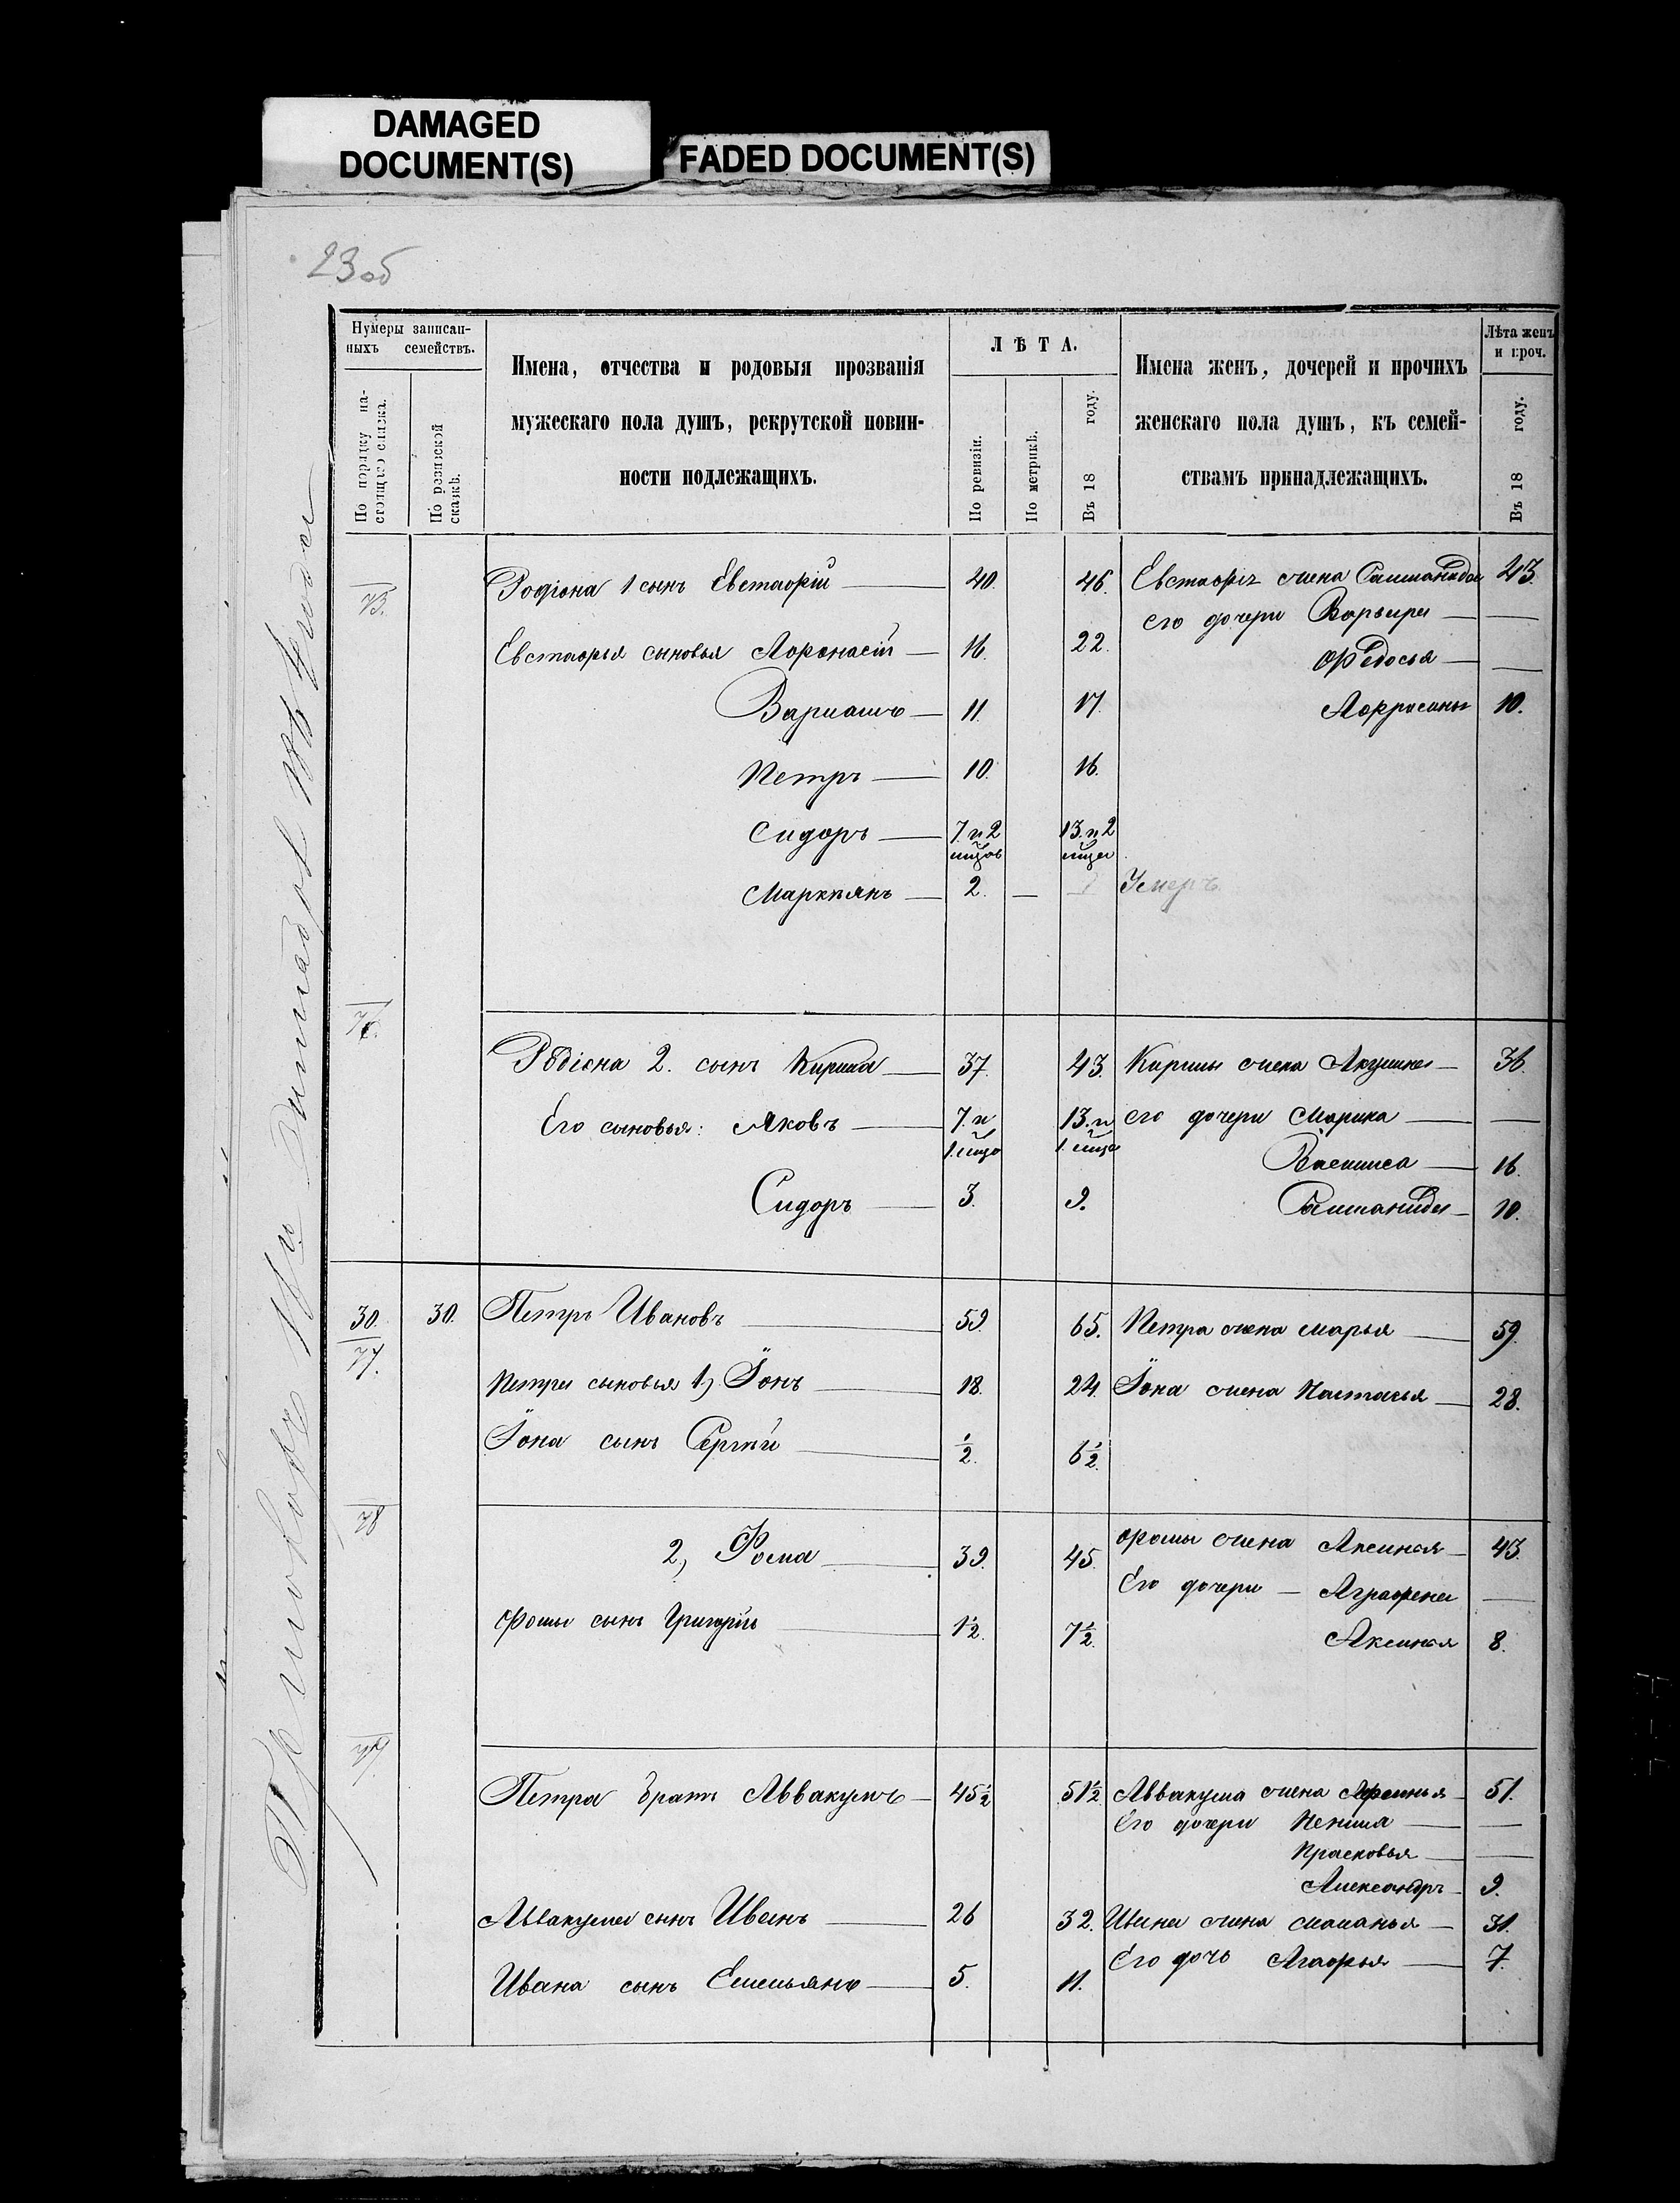 DAMAGED
DOCUMENT(S)
FADED DOCUMENT(S)
23об
Нумеры записан-
ныхъ семействъ.
По порядку на-
стоящаго списка.
По ревизской
сказкѣ.
Имена, отчества и родовыя прозванія
мужескаго пола душъ, рекрутской повин-
ности подлежащихъ.
ЛѢТА.
По ревизіи.
По метрикѣ.
Въ 18 году.
Имена женъ, дочерей и прочихъ
женскаго пола душъ, къ семей-
ствамъ принадлежащихъ.
Лѣта женъ
и проч.
Въ 18 году.
75. Родіона 1 сынъ Евстафій — 40. 46. Евстафія жена 43.
его дочери Варвара —
Евстафья сыновья Афонасій — 16. 22. Федосья —
11. 17. 10.
Петръ — 10. 16.
Сидоръ — 7. и 2 13. и 2
Маркиянъ — 2. — Умеръ
76.
Родіона 2. сынъ Кирила — 37. 43. Кирилы жена — 36.
Его сыновья: Яковъ — 7. и 1 13. и 1 его дочери Марина —
Васишса — 16.
Сидоръ — 3. 9. 10.
30. 30. Петръ Ивановъ — 59. 65. Петра жена Марья — 59.
77.
Петра сыновья 1) Іонъ — 18. 24. Іона жена Настасья — 28.
Іона сынъ Сергѣй — 1/2. 6 1/2.
78
2, Фома — 39. 45. Фомы жена Аксинья — 43.
Его дочери — Аграфена —
Фомы сынъ Григорій — 1 1/2. 7 1/2. Аксинья 8.
79
Петра братъ Аввакумъ — 45 1/2 51 1/2. Аввакума жена — 51.
Его дочери —
Прасковья —
9.
Аввакума сынъ Иванъ — 26 32. Ивана жена Маланья — 31.
Его дочь Агафья — 7.
Ивана сынъ Емельянъ — 5. 11.